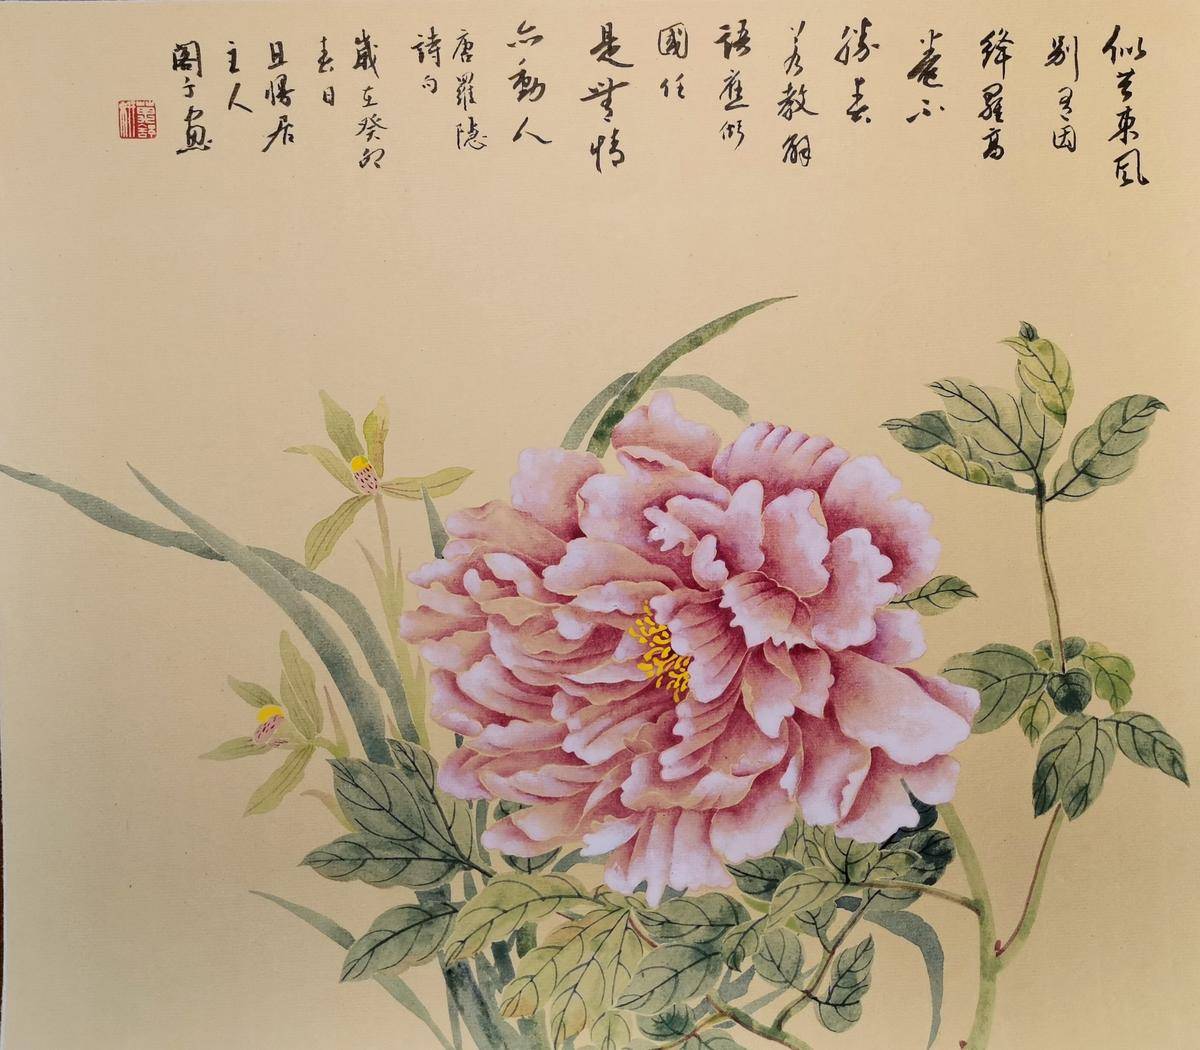 似共東風
別有因
絳羅高
卷不
勝春
若教解
語應傾
國任
是無情
亦動人
唐羅隱
詩句
歲在癸卯
春日
且慢居
主人
閣子畫